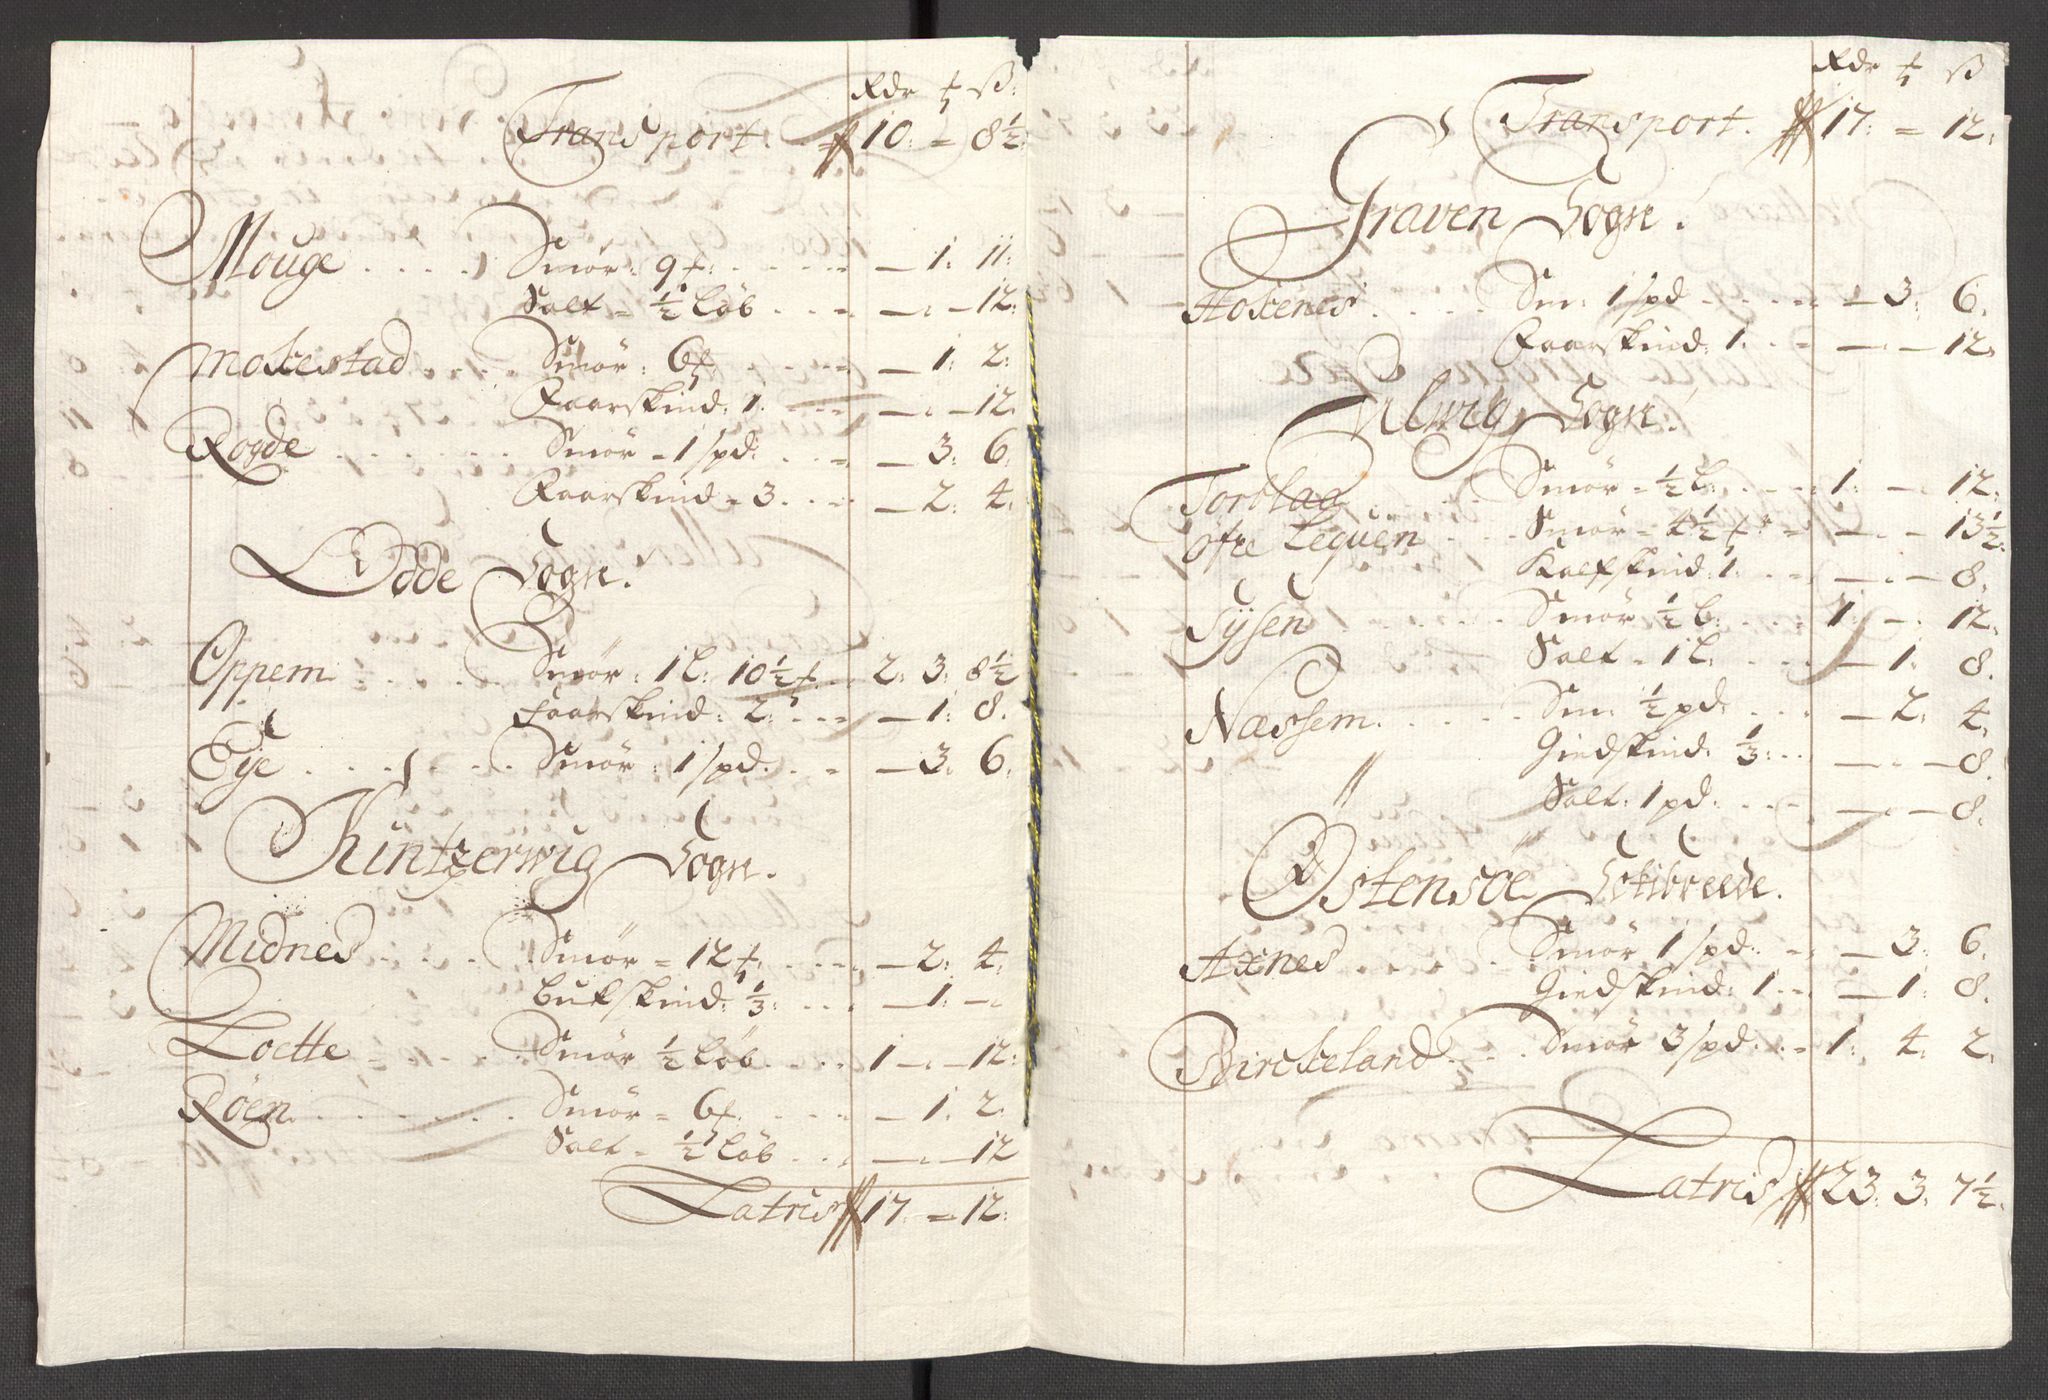 Rdr ß:
Transport. 10: = 8½:
Mouge . . . . Smör: 9 . . . . — 1: 11:
Salt = ½ Löb . . . — " — 12:
Mokestad . . . . Smör: 6 . . . . — 1: 2:
Faarskind: 1. . . . — " — 12:
Rogde . . . . . . Smör = 1 spd: . . = — 3: 6:
Faarskind = 3. . . . — 2: 4:
Odde Sogn.
Oppem . . . . Smör: 1 L: 10½ . . 2: 3: 8½
Faarskind: 2: . . . — 1: 8.
Eye . . . . . . . Smör: 1 spd: . . = — 3: 6:
Kintzerwig Sogn.
Midnes . . . . Smör = 12 . . . . — 2: 4:
Bukskind: ⅓: . . . — 1: —
Loette . . . . Smör ½ Löb . . . . 1 — " — 12:
Röen . . . . . . Smör = 6 . . . . — 1: 2:
Salt = ½ Löb . . . — " — 12
Latus 17: = 12:
Rdr ß
Transport. 17: = 12:
Graven Sogn.
Hokenes . . . . Sm: 1 spd . . . . — 3: 6.
Faarskind: 1. . . — " — 12.
Ulwig Sogn.
Torblaa . . . . Smör = ½ L: . . . . 1: — 12:
Öfre Lequen . . . Smör = 4½ = — " — 13½:
Kalfskind: 1. . . — " — 8.
Sysen . . . . Smör ½ L. . . . 1: — 12:
Salt = 1 L. . . . — 1: 8.
Næssem . . . . . Sm: ½ pd . . . — 2: 4.
Giedskind: ⅓: . . — " — 8.
" Salt: 1 pd: . . . — " — 8.
Östensöe Schibrede.
Axnes . . . . . Smör 1 spd: . . — 3: 6.
Giedskind: 1 . . . — 1: 8.
Birckeland . . . Smör 3 spd: . . 1: 4: 2.
Latus 23: 3: 7½.